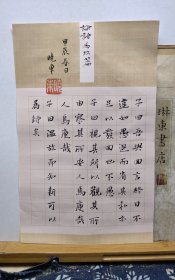 論語為政篇
子曰吾與回言終日不
違如愚退而省其私亦
足以發回也不愚
子曰視其所以觀其所
由察其所安人焉廋哉
人焉廋哉
子曰溫故而知新可以
為師矣
甲辰春日
東書店